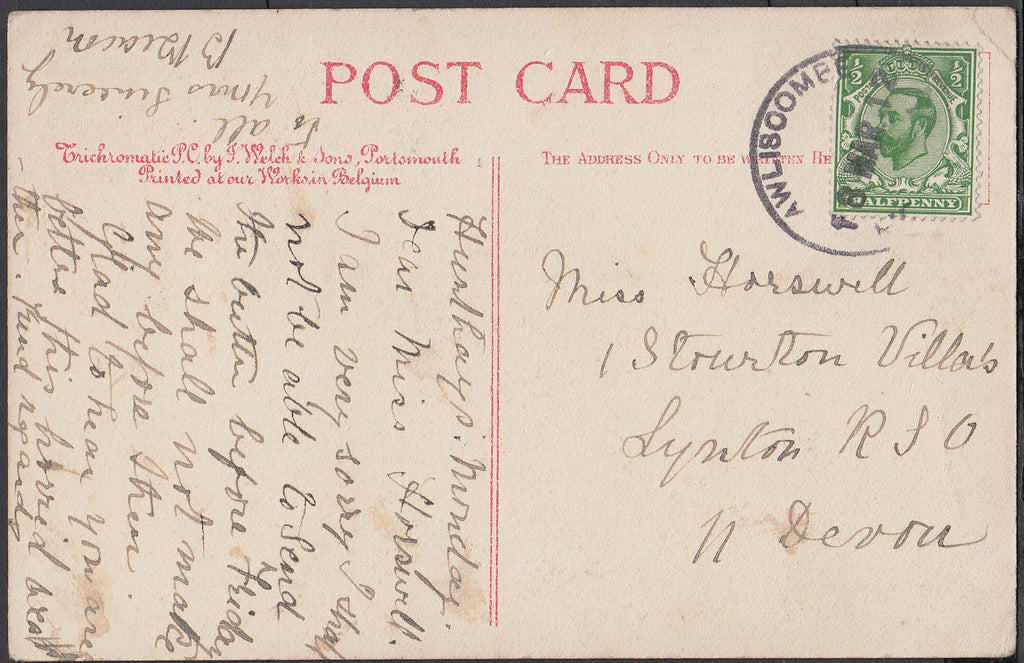 POST CARD
Trichromatic P.C. by F. Welch & Sons, Portsmouth
Printed at our Works in Belgium
THE ADDRESS ONLY TO BE WRITTEN HE
AWLISCOMBE
MAR 12
POSTAGE
½ ½
HALFPENNY
Miss Horswill
1 Stourton Villa's
Lynton R S O
N Devon
Hunthays. Monday.
Dear Miss Horswill.
I am very sorry I shall
not be able to send
the butter before Friday
We shall not make
any before then.
Glad to hear you are
better this horrid weath
-ther. Kind regards
to all.
Yours Sincerely
B